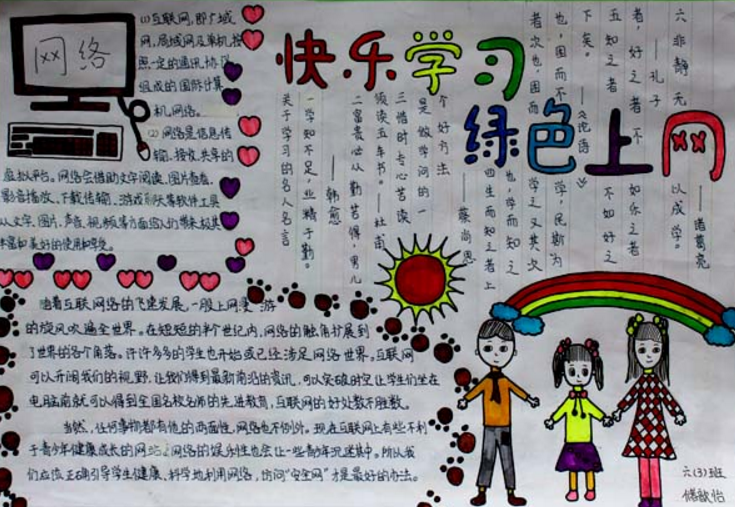 网络
(1)互联网,即广域
网,局域网及单机按
照一定的通讯协议
组成的国际计算
机网络。
(2)网络是信息传
输、接收、共享的
虚拟平台。网络会借助文字阅读、图片查看、
影音播放、下载传输、游戏聊天等软件工具
从文字、图片、声音、视频等方面给人们带来极其
丰富和美好的使用和享受。
快乐学习
绿色上网
关于学习的名人名言
一学知不足,业精于勤。
——韩愈
二富贵必从勤苦得,男儿
须读五车书。——杜甫
三惜时专心苦读
是做学问的一
个好方法
——蔡尚思
四生而知之者上
也学而知之
者次也,困而
学之又其次
也,困而不
学,民斯为
下矣。
——《论语》
五知之者
不如好之
者,好之者不
如乐之者
——孔子
六非静无
以成学。
——诸葛亮
随着互联网络的飞速发展,一股上网
的旋风吹遍全世界。在短短的半个世纪内,网络的触角扩展到
了世界的各个角落。许许多多的学生也开始或已经涉足网络世界。互联网
可以开阔我们的视野,让我们得到最新前沿的资讯,可以突破时空让学生们坐在
电脑前就可以得到全国名校名师的先进教育,互联网的好处数不胜数。
当然,任何事物都有他的两面性,网络也不例外。现在互联网上有些不利
于青少年健康成长的网站,网络的娱乐性也会让一些青少年沉迷其中。所以我
们应该正确引导学生健康、科学地利用网络,访问“安全网”才是最好的办法。
六(3)班